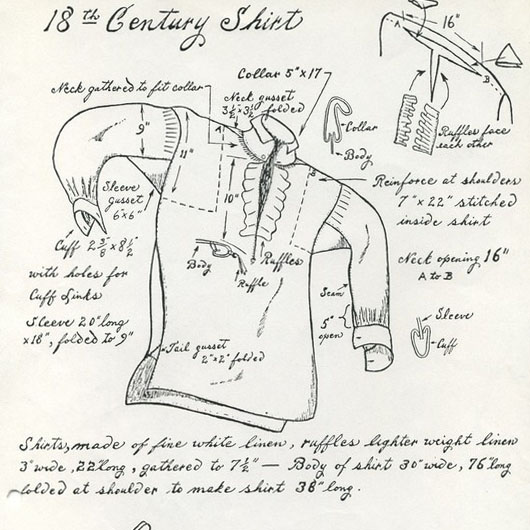 18th Century Shirt
16"
A
B
Neck gathered to fit collar
Collar 5"x17
Neck gusset
3½"x3½" folded
Collar
Body
Ruffles face
each other
9"
11"
A
B
10"
Sleeve
gusset
6"x6"
Reinforce at shoulders
7"x22" stitched
inside shirt
Cuff 2⅜"x8½"
with holes for
Cuff Links
Sleeve 20" long
x18", folded to 9"
Body
Ruffle
Ruffles
Neck opening 16"
A to B
Seam
5"
open
Sleeve
Cuff
Tail gusset
2"x2" folded
Shirts, made of fine white linen, ruffles lighter weight linen
3" wide, 22" long, gathered to 7½" — Body of shirt 30" wide, 76" long
folded at shoulder to make shirt 38" long.